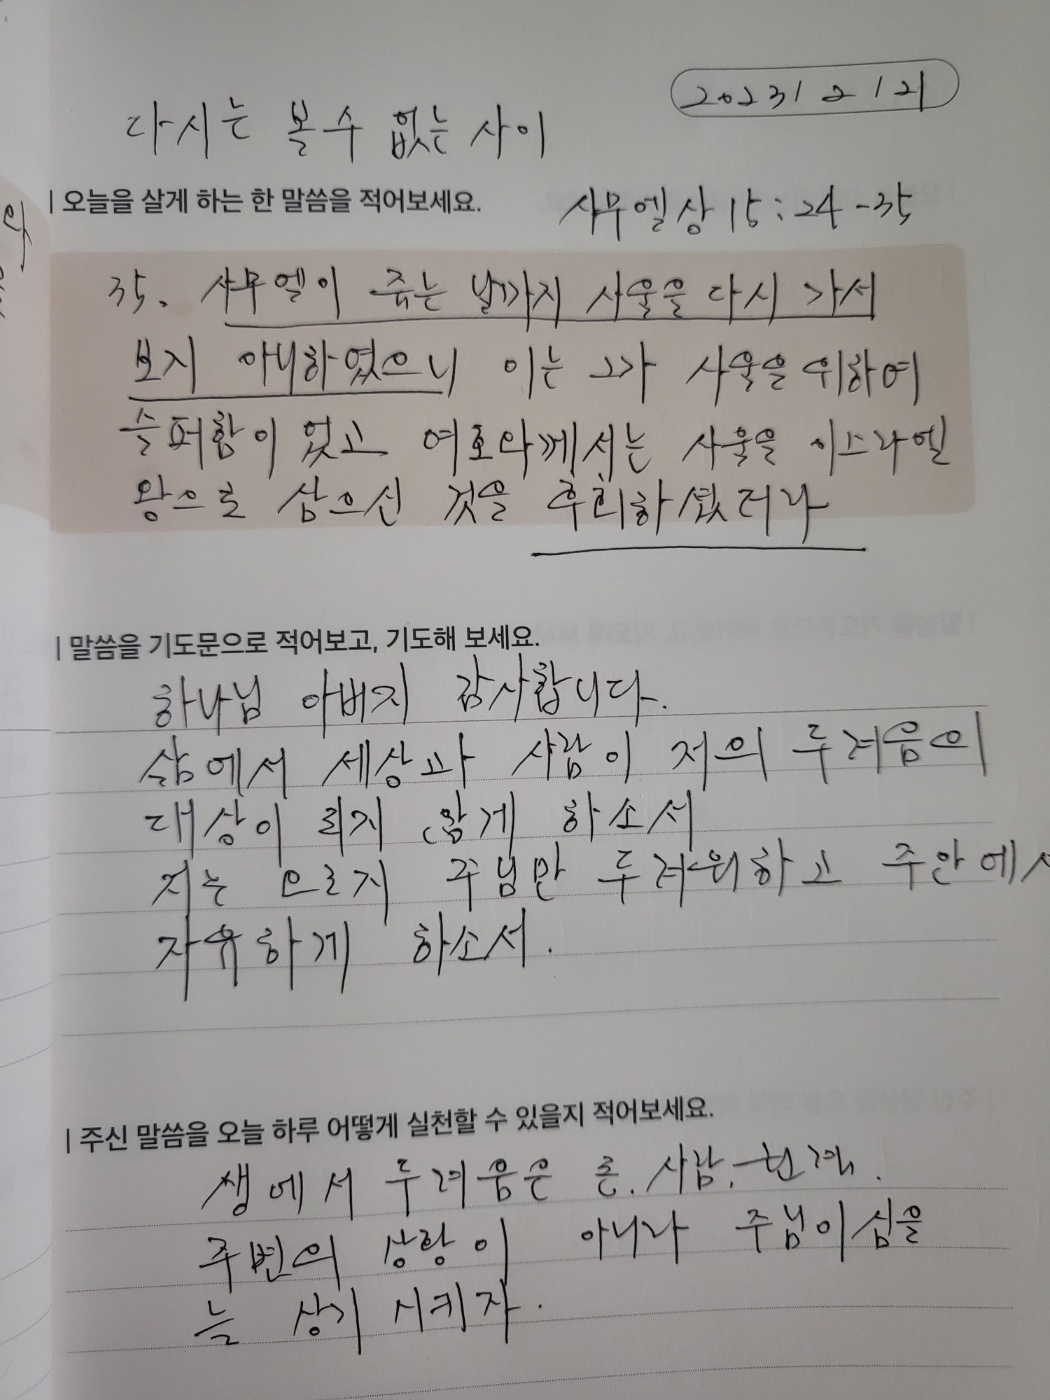 2023/2/21
다시는 볼수 없는 사이
| 오늘을 살게 하는 한 말씀을 적어보세요.
사무엘상 15:24-35
35. 사무엘이 죽는 날까지 사울을 다시 가서
보지 아니하였으니 이는 그가 사울을 위하여
슬퍼함이 었고 여호와께서는 사울을 이스라엘
왕으로 삼으신 것을 후회하셨더라
| 말씀을 기도문으로 적어보고, 기도해 보세요.
하나님 아버지 감사합니다.
삶에서 세상과 사람이 저의 두려움의
대상이 되지 않게 하소서
저는 오르지 주님만 두려워하고 주안에서
자유하게 하소서.
| 주신 말씀을 오늘 하루 어떻게 실천할 수 있을지 적어보세요.
생에서 두려움은 돈. 사람. 현재.
주변의 상황이 아니라 주님이심을
늘 상기 시키자.